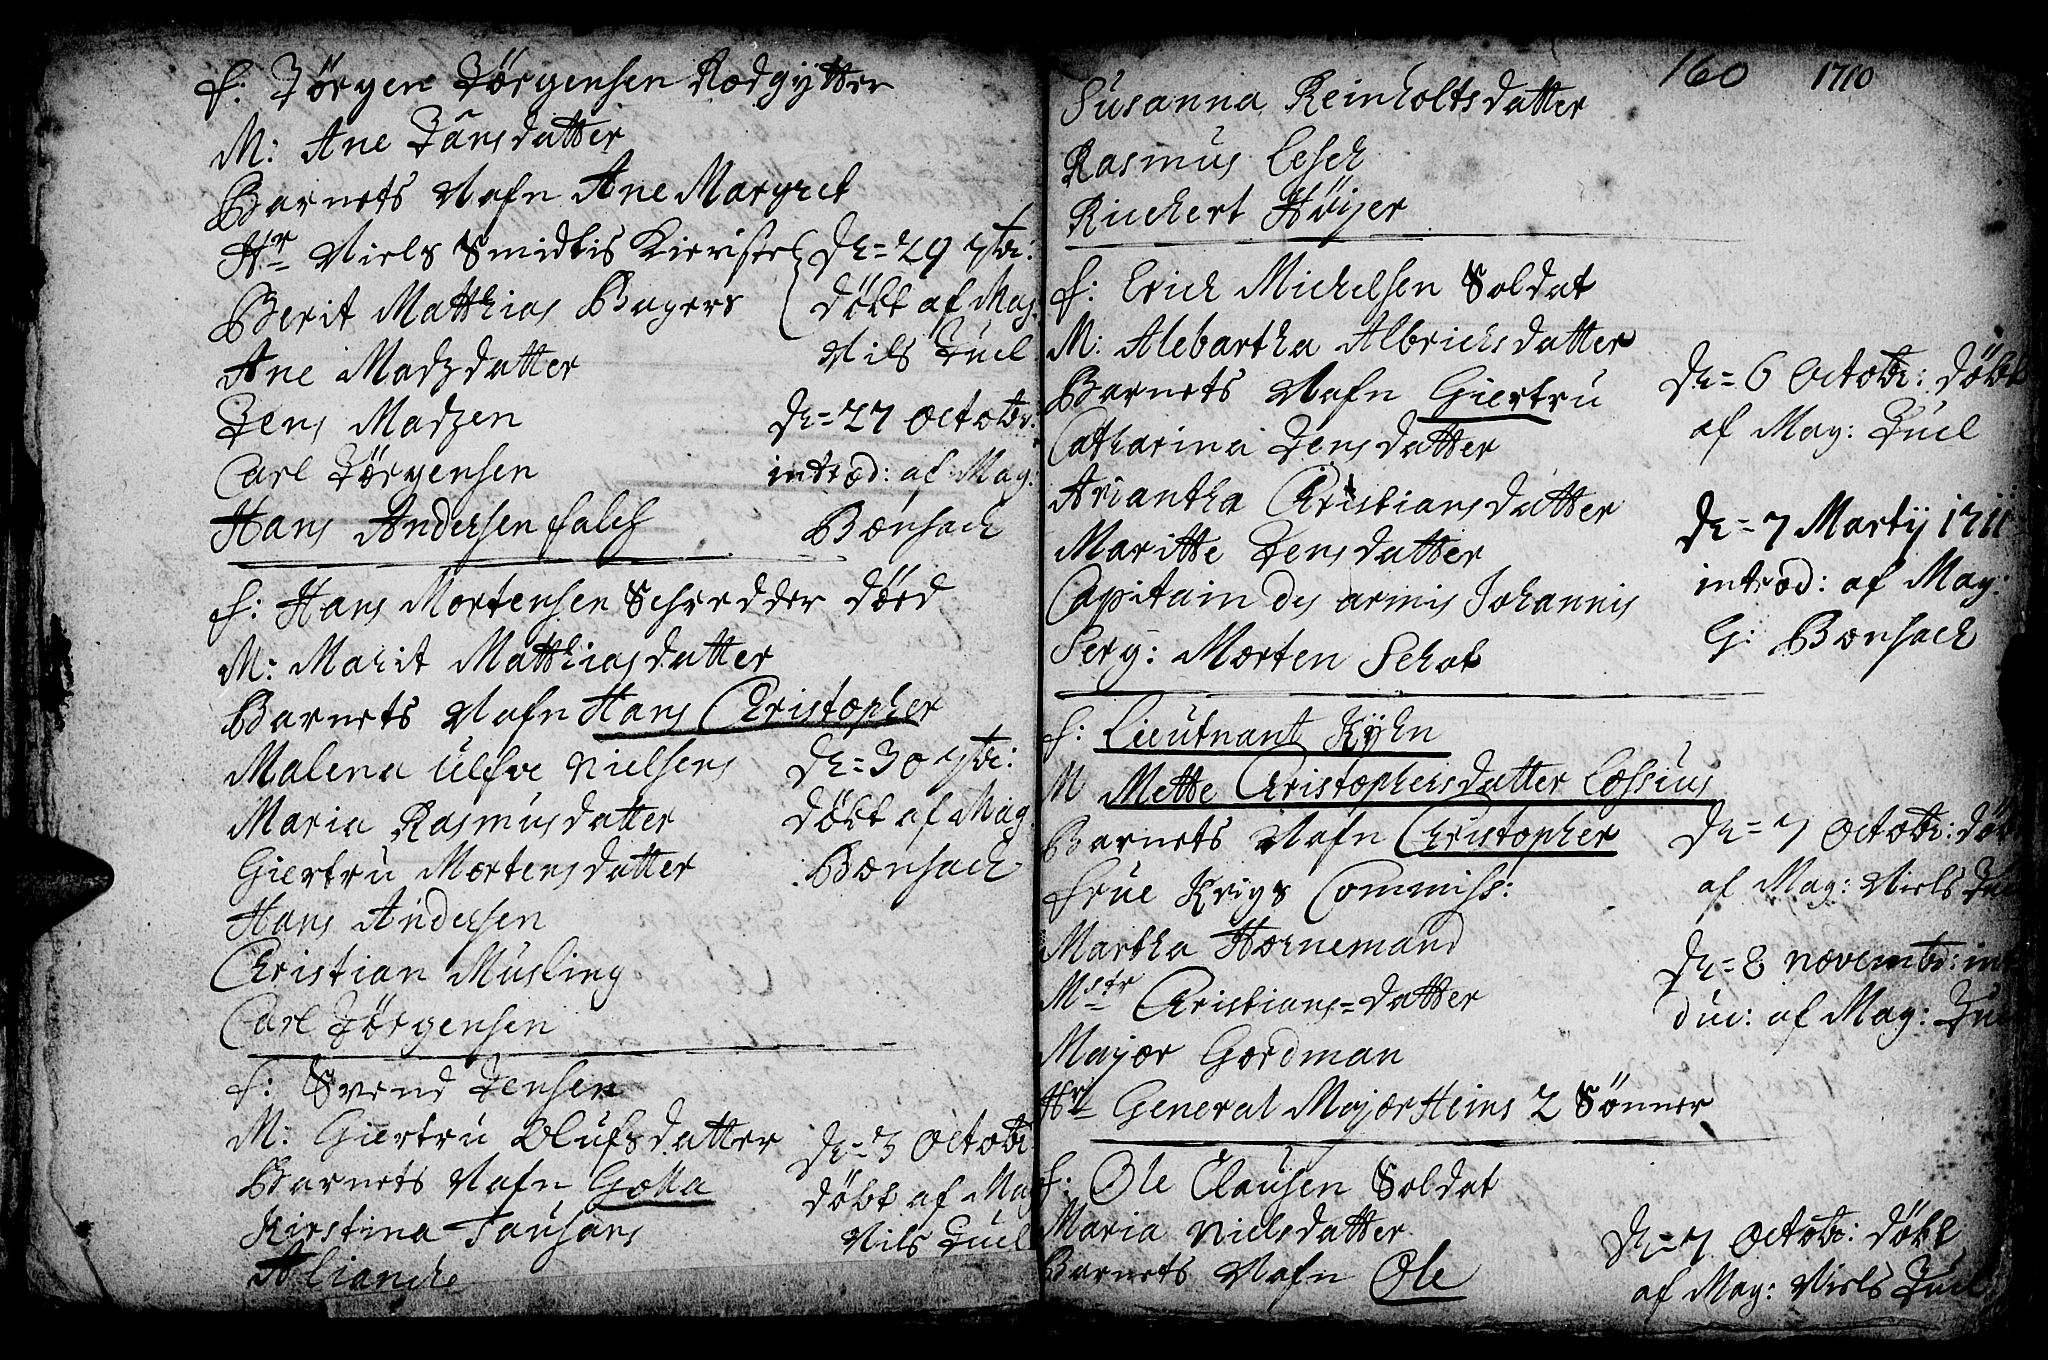 f: Jörgen Jörgensen Rodgytter
M: Ane Jansdatter
Barnets Nafn Ane Margret
Hr Niels Smidtis Kieriste
Berit Matthias Bagers
Ane Madzdatter
Jens Madzen
Carl Jörgensen
Hans Andersen falch
D: = 29 7tbr:
döbt af Mag:
Nils Juel
D: = 27 Octobr:
introd: af Mag:
Bornsach
f: Hans Mortensen Schredder död
M: Marit Matthiasdatter
Barnets Nafn Hans Christopher
Malena Ulfve Nielsens
Maria Rasmusdatter
Giertru Mortensdatter
Hans Andersen
Christian Musling
Carl Jörgensen
D: = 30 7tbr:
döbt af Mag
Bornsach
f: Svend Jensen
M: Giertru Olufsdatter
Barnets Nafn Golla
Kirstina Tausans
Alianche
D: = 3 Octobr
döbt af Mag
Nils Juel
160 1710
Susanna Reinholtsdatter
Rasmus Lesch
Richert Höijer
f: Erich Michelsen Soldat
M: Alebartha Albrichsdatter
Barnets Nafn Giertru
Catharina Jensdatter
Ariantha Christiansdatter
Maritte Jensdatter
Capitain des armis Johannis
Serg: Morten Schot
D: = 6 Octobr: döbt
af Mag: Juel
D: = 7 Martij 1711
introd: af Mag:
G: Bornsach
f: Lieutnant Kyhn
M Mette Christophersdatter Lossius
Barnets Nafn Christopher
frue Krigs Commiss:
Martha Hornemand
Mstr Christians=datter
Major Gordman
Hr General Major Heins 2 Sönner
D: = 7 Octobr: döbt
af Mag: Niels Juel
D: = 8 novembr: int
duc: af Mag: Juel
f: Ole Clausen Soldat
Maria Nielsdatter
Barnets Nafn Ole
D: = 7 Octobr: döbt
af Mag: Niels Juel